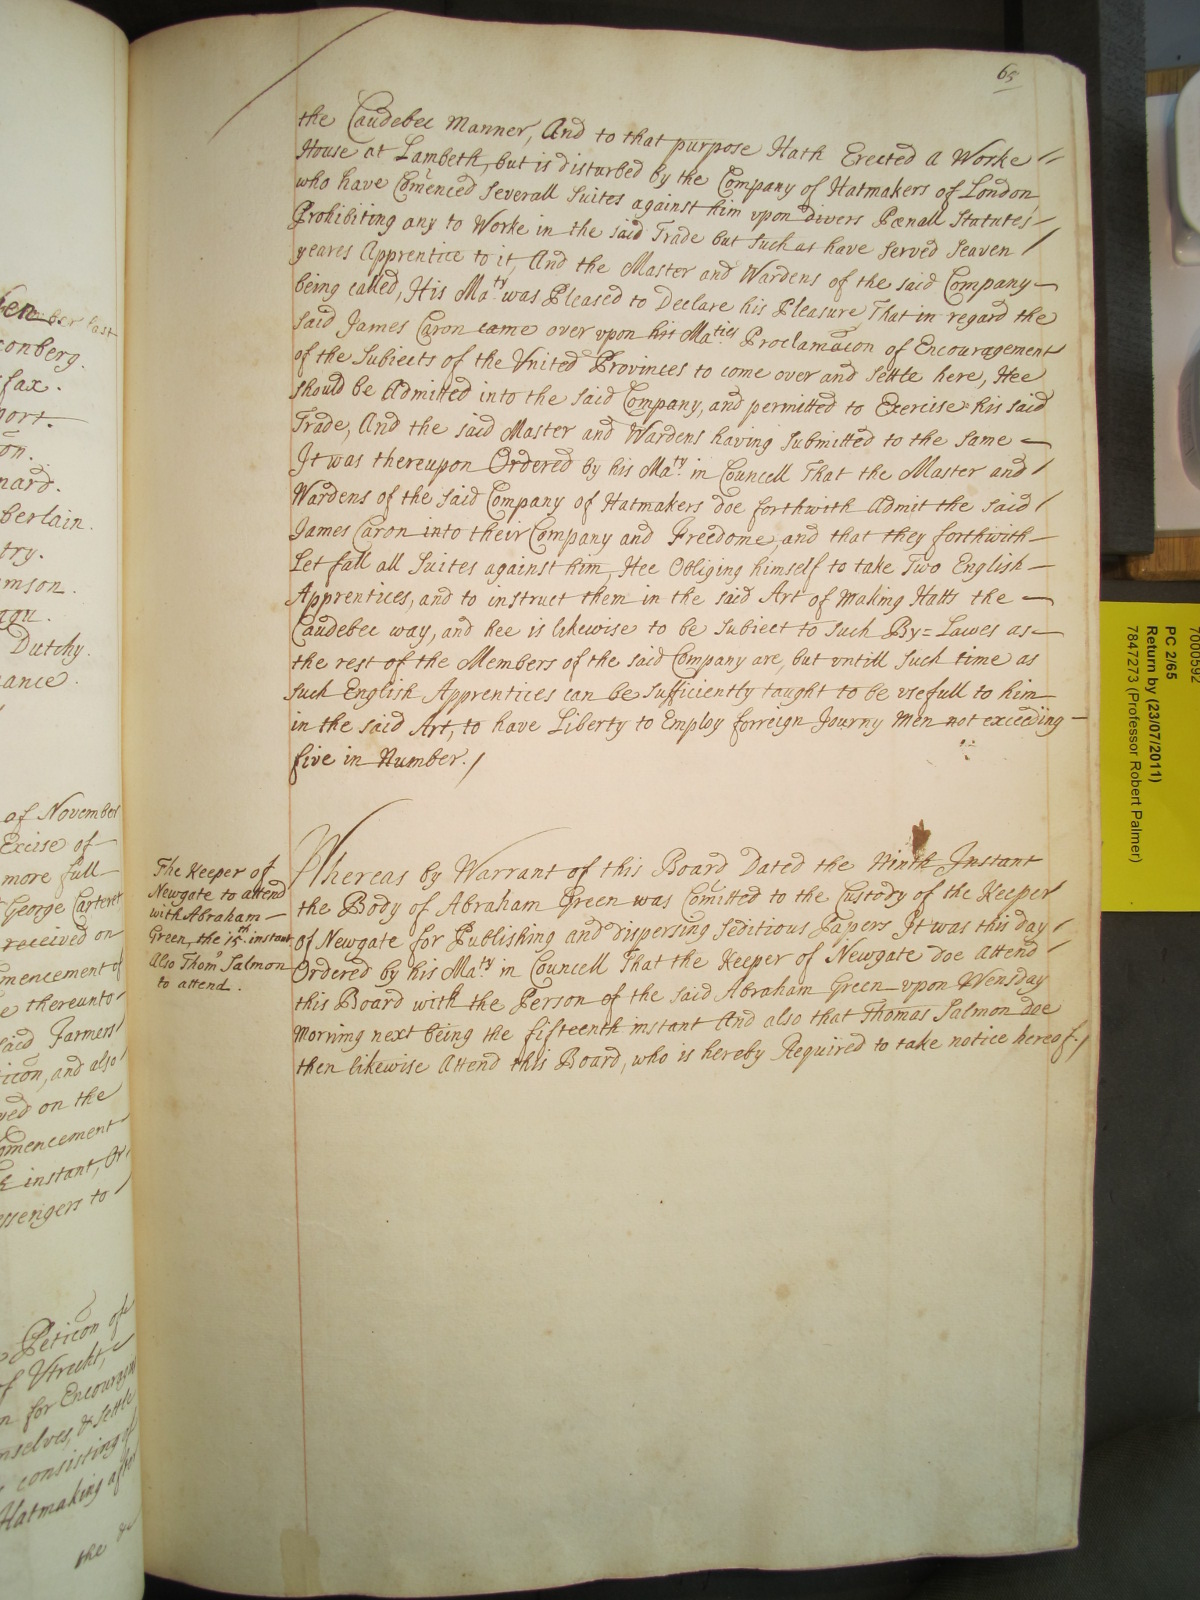 65
the Caudebec Manner, And to that purpose Hath Erected a Worke
House at Lambeth, but is disturbed by the Company of Hatmakers of London
who have Com̃enced severall Suites against him vpon divers Pænall Statutes
Prohibiting any to Worke in the said Trade but such as have served seaven
yeares Apprentice to it, And the Master and Wardens of the said Company
being called, His Ma.ty was Pleased to Declare his Pleasure That in regard the
said James Caron came over vpon his Ma.ties Proclamac̃on of Encouragement
of the Subiects of the Vnited Provinces to come over and settle here, Hee
should be Admitted into the said Company, and permitted to Exercise his said
Trade, And the said Master and Wardens having submitted to the same
It was thereupon Ordered by his Ma.ty in Councell That the Master and
Wardens of the said Company of Hatmakers doe forthwith Admit the said
James Caron into their Company and Freedome, and that they forthwith
Let fall all Suites against him, Hee Obliging himself to take Two English
Apprentices, and to instruct them in the said Art of making Hatts the
Caudebec way, and hee is likewise to be subiect to such By=Lawes as
the rest of the Members of the said Company are, but vntill such time as
such English Apprentices can be sufficiently taught to be vsefull to him
in the said Art, to have Liberty to Employ forreign Journy men not exceeding
five in Number./
The Keeper of
Newgate to attend
with Abraham
Green, the 15th. instant
Also Thom.s Salmon
to attend.
Whereas by Warrant of this Board Dated the Ninth Instant
the Body of Abraham Green was Com̃itted to the Custody of the Keeper
of Newgate for Publishing and dispersing seditious Papers It was this day
Ordered by his Ma.ty in Councell That the Keeper of Newgate doe Attend
this Board with the Person of the said Abraham Green vpon Wensday
Morning next being the fifteenth instant And also that Thomas Salmon doe
then likewise Attend this Board, who is hereby Required to take notice hereof./
conberg.
fax.
port.
on.
nard.
berlain.
try.
mson.
agu.
Dutchy.
ance.
of November
Excise of
more full
George Carteret
received on
mencement of
e thereunto
said Farmers
ic̃on, and also
ved on the
mencement
instant, Or
ssengers to
Petic̃on of
of Vtrecht,
n for Encouragem
mselves, & settle
consisting of
Hatmaking after
the
7000592
PC 2/65
Return by (23/07/2011)
7847273 (Professor Robert Palmer)